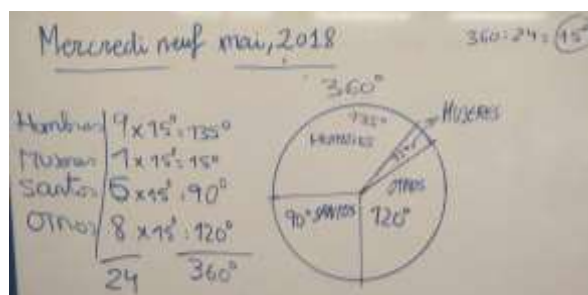 Mercredi neuf mai, 2018
360:24 = 15°
Hombres 9 x 15° : 135°
Mujeres 1 x 15° : 15°
Santos 6 x 15° : 90°
Otros 8 x 15° : 120°
24 360°
360°
135°
HOMBRES
MUJERES
15°
OTROS
90° SANTOS
120°